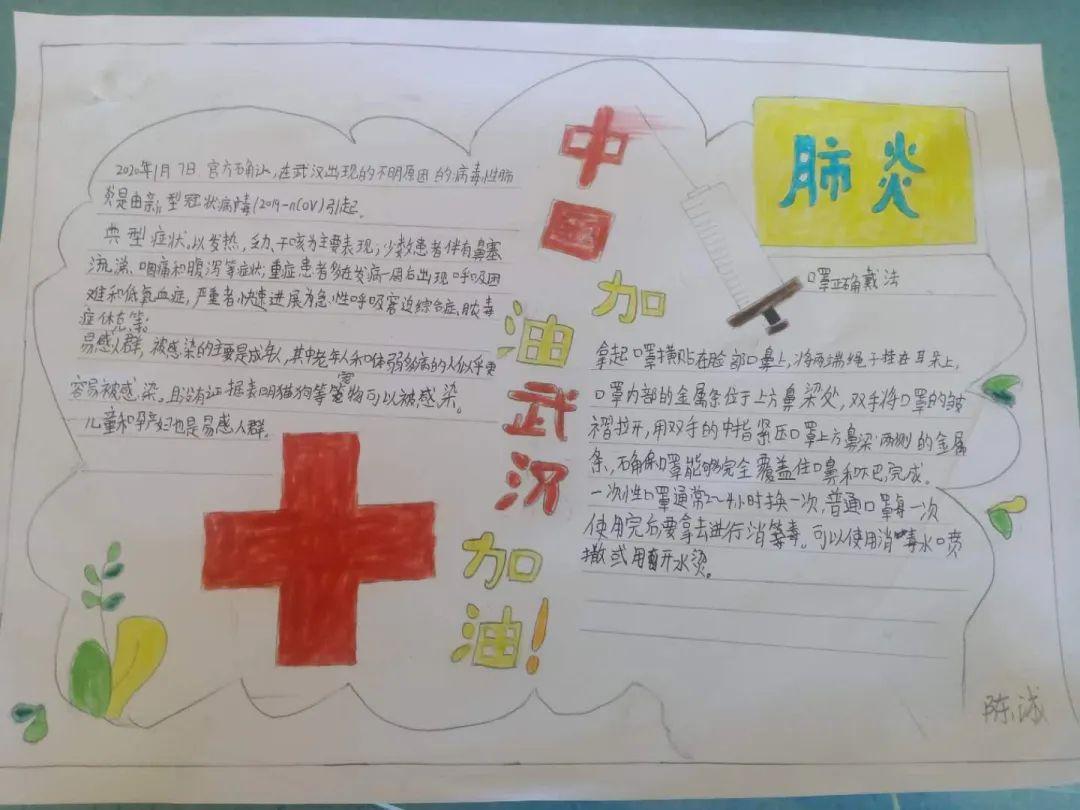 2020年1月7日 官方确认,在武汉出现的不明原因的病毒性肺
炎是由新型冠状病毒(2019-nCOV)引起。
典型症状。以发热,乏力、干咳为主要表现;少数患者伴有鼻塞
流涕、咽痛和腹泻等症状;重症患者多在发病一周后出现呼吸困
难和低氧血症,严重者快速进展为急性呼吸窘迫综合症、脓毒
症休克等。
易感人群,被感染的主要是成年人,其中老年人和体弱多病的人似乎更
容易被感染。且没有证据表明猫狗等宠物可以被感染。
儿童和孕产妇也是易感人群。
中国
加
油
武
汉
加
油!
肺炎
口罩正确戴法
拿起口罩横贴在脸部口鼻上,将两端绳子挂在耳朵上,
口罩内部的金属条位于上方鼻梁处,双手将口罩的皱
褶拉开,用双手的中指紧压口罩上方鼻梁两侧的金属
条,确保口罩能够完全覆盖住口鼻和下巴,完成。
一次性口罩通常2~4小时换一次,普通口罩每一次
使用完后要拿去进行消毒。可以使用消毒水喷
撒或用开水烫。
陈诚